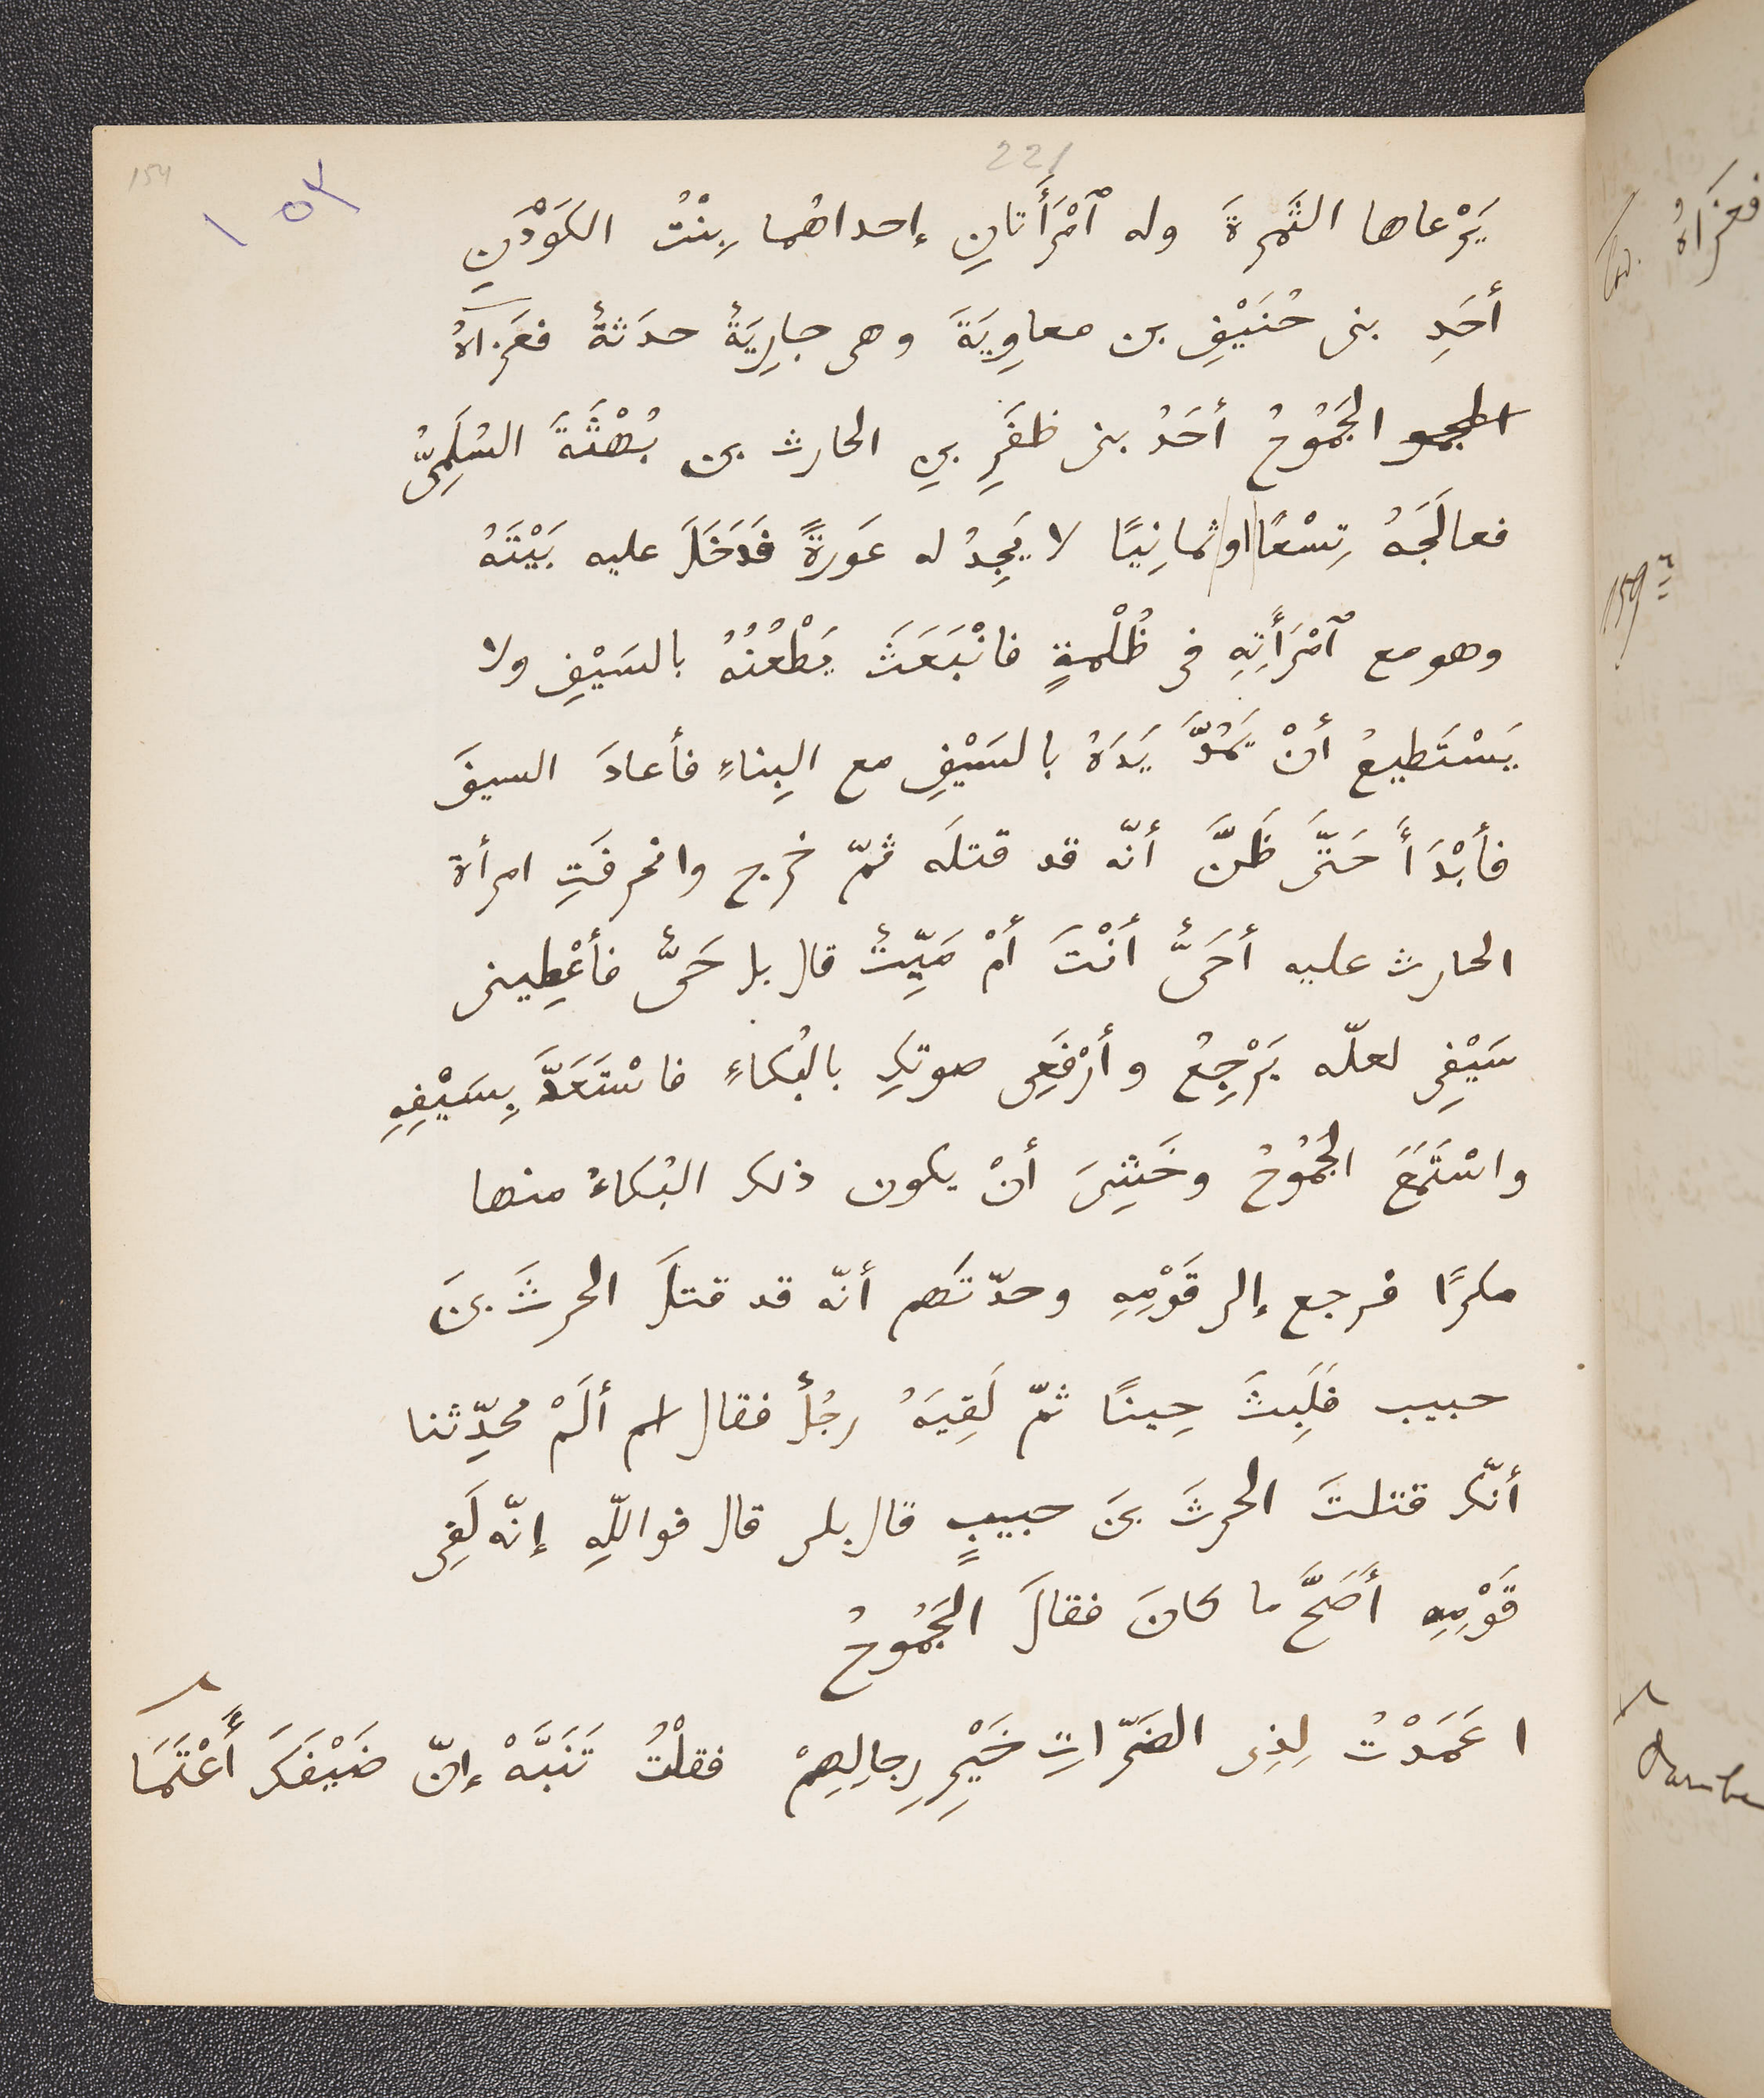 154
221
١٥٢
يَرْعاها الثَّمِرةَ وله ٱمْرَأَتانِ إحداهُما بِنْتُ الكَوْدَنِ
أحَدِ بنى حُنَيْفِ بن معاوِيَةَ وهى جارِيَةٌ حدَثةٌ فغَزاهُ
الجمو الجَمُوحُ أحَدُ بنى ظفَرِ بنِ الحارث بن بُهْثَةَ السُلَمِىُّ
فعالَجَهُ تِسْعًا او ثمانِيًا لا يَجِدُ له عَورةً فَدَخَلَ عليه بَيْتَهُ
وهو مع ٱمْرَأَتِهِ فى ظُلْمةٍ فانْبَعَثَ يَطْعُنُهُ بالسَيْفِ ولا
يَسْتَطيعُ أنْ يَمُدَّ يَدَهُ بالسَيْفِ مع البِناءِ فأعادَ السيفَ
فأبْدَأَ حَتَّى ظَنَّ أنّه قد قتلَه ثمّ خرج وانحرفَتِ امرأة
الحارث عليه أحَىٌّ أنْتَ أمْ مَيِّتٌ قال بل حَىٌّ فأعْطِينى
سَيْفِى لعلّه يَرْجِعُ وأرْفَعِى صوتكِ بالبُكاءِ فاسْتَعَدَّ بِسَيْفِهِ
واسْتَمَعَ الجَمُوحُ وخَشِىَ أنْ يكون ذلك البُكاءُ منها
مكرًا فرجع إلى قَوْمِهِ وحدّثَهم أنّه قد قتلَ الحرثَ بنَ
حبيب فلَبِثَ حِينًا ثمّ لَقِيَهُ رجُلٌ فقال لم ألَمْ تحدِّثنا
أنّك قتلتَ الحرثَ بنَ حبيبٍ قال بلى قال فواللّهِ إنّه لَفِى
قَوْمِهِ أَصَحَّ ما كانَ فقالَ الجَمُوحُ
١ عَمَدْتُ لِذِى الضَرّاتِ خَيْرِ رِجالِهِمْ فقلْتُ تَنَبَّهْ إنّ ضَيْفَكَ أَعْتَمَا
فغَزَاهُ
Cod.
159